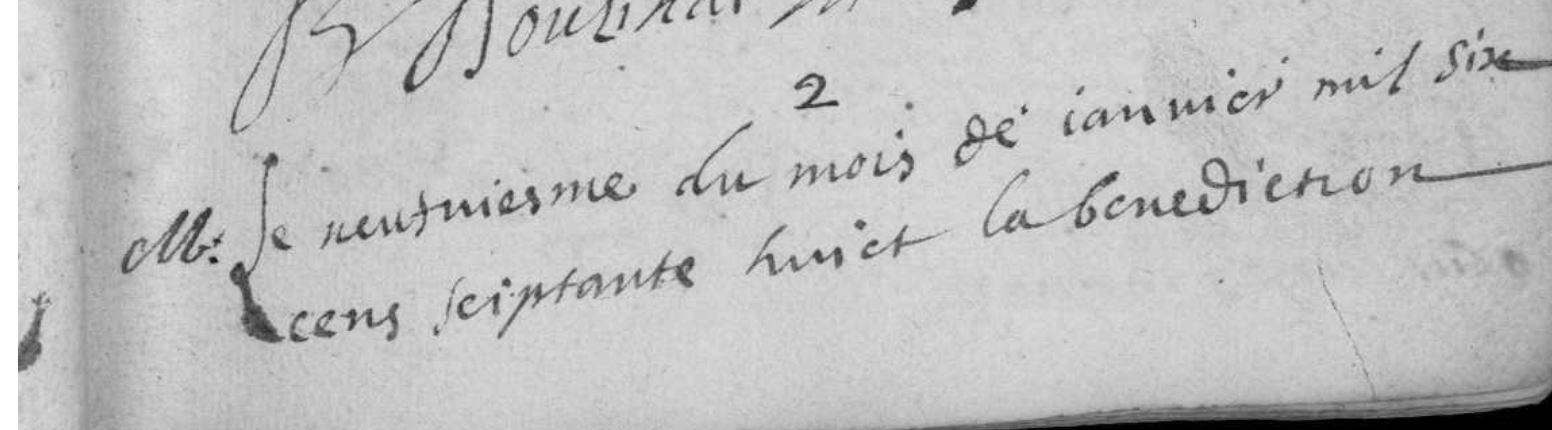 2
M: Le neufviesme du mois de ianvier mil six
cens seiptante huict la benediction